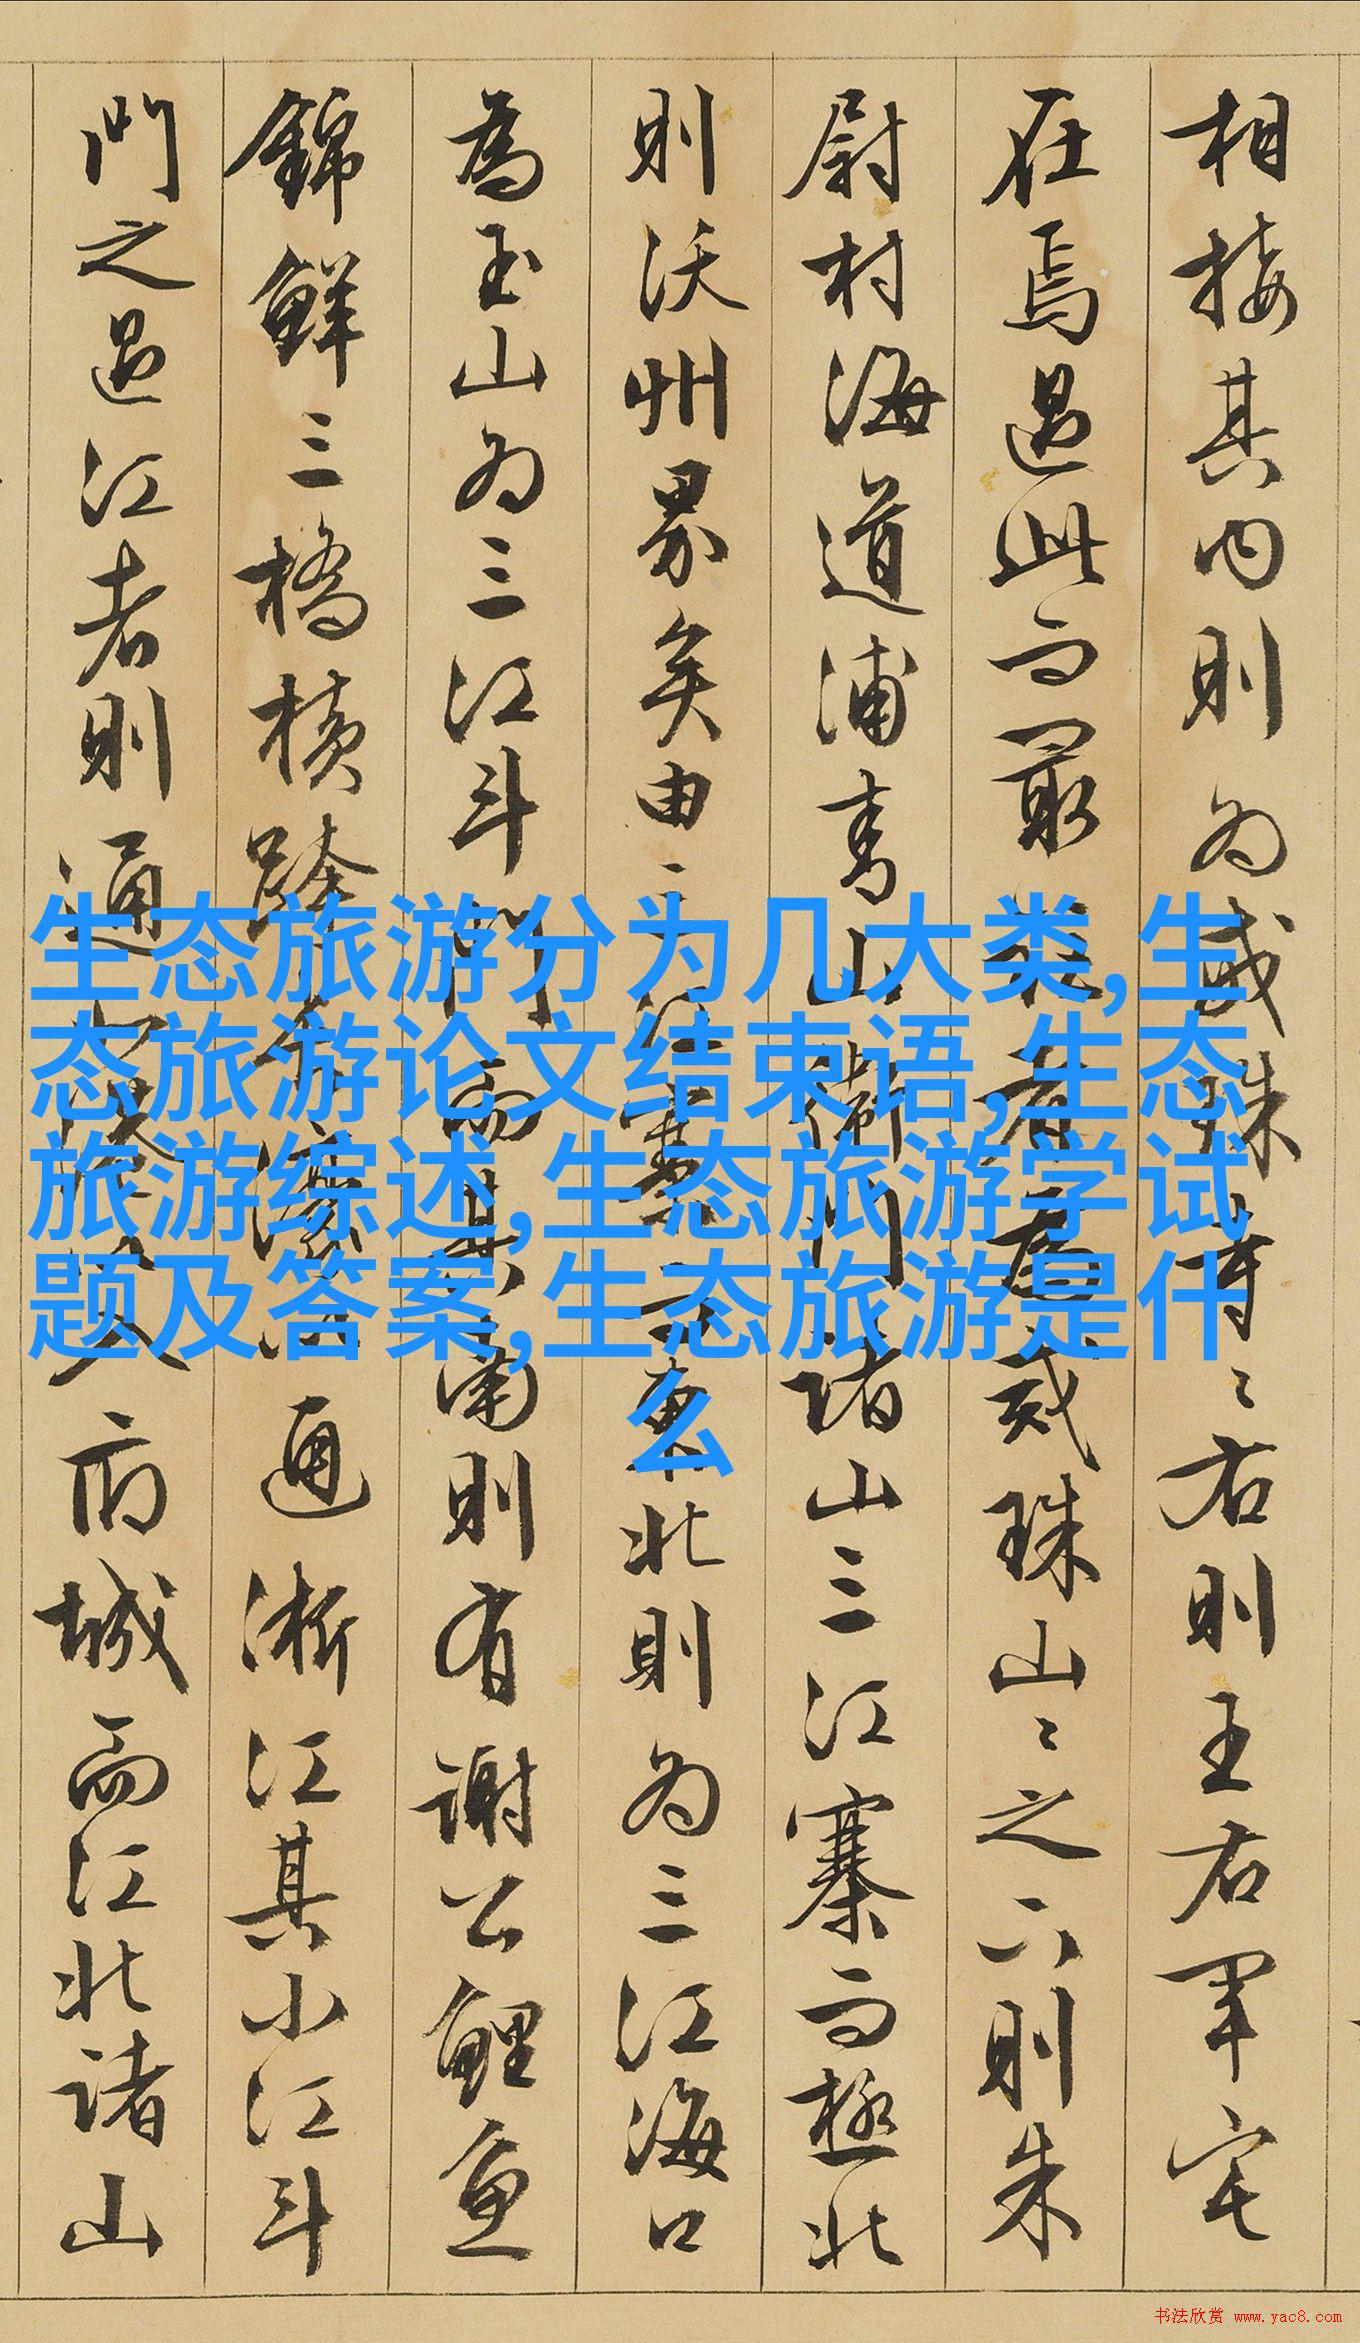 相接其内則为戒珠寺〻右則王右軍宅
在焉過此而最者為戒珠山〻之下則朱
尉村海道浦青山衛門諸山三江寨而極北
則沃州界矣由三江寨東北則为三江海口
為玉山为三江斗門而其南則有謝公鯉魚
錦鮮三橋橫跨通浙江其小江斗
門之過江者則通入府城而江北諸山
生态旅游分为几大类,生
态旅游论文结束语,生态
旅游综述,生态旅游学试
题及答案,生态旅游是什
么
书法欣赏 www.yac8.com